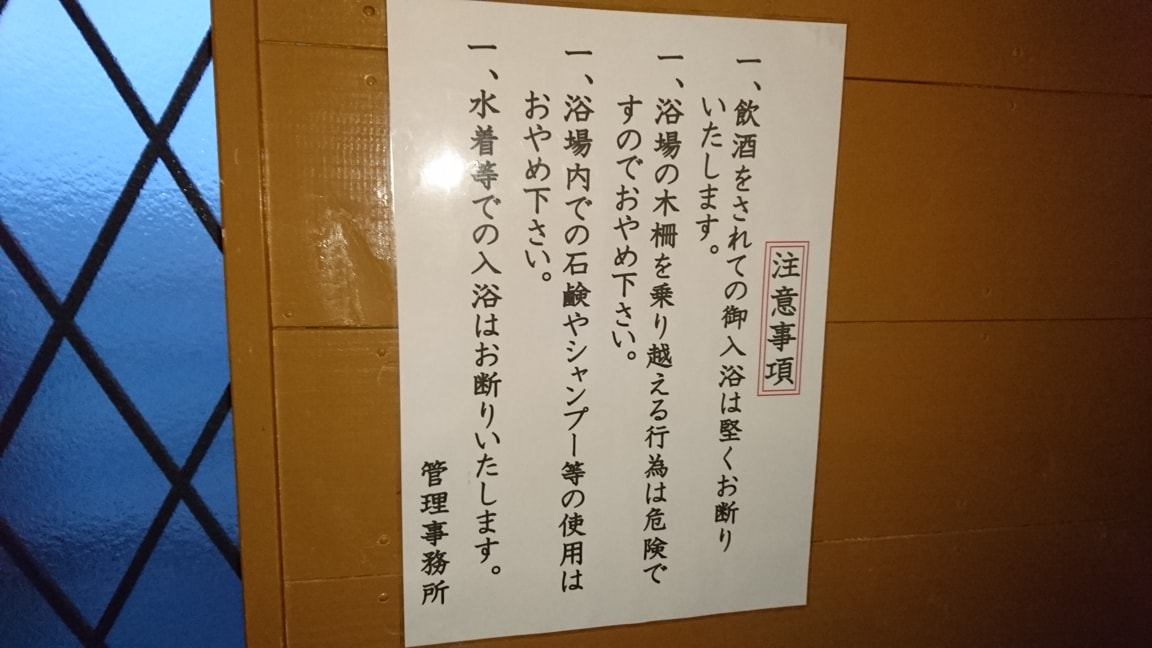 注意事項
一、飲酒をされての御入浴は堅くお断り
いたします。
一、浴場の木柵を乗り越える行為は危険で
すのでおやめ下さい。
一、浴場内での石鹸やシャンプー等の使用は
おやめ下さい。
一、水着等での入浴はお断りいたします。
管理事務所